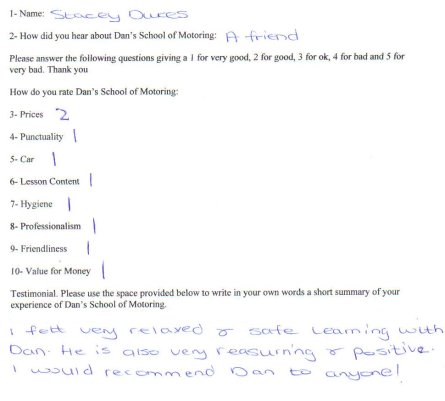 1- Name: Stacey Dukes
2- How did you hear about Dan's School of Motoring: A friend
Please answer the following questions giving a 1 for very good, 2 for good, 3 for ok, 4 for bad and 5 for
very bad. Thank you
How do you rate Dan's School of Motoring:
3- Prices 2
4- Punctuality 1
5- Car 1
6- Lesson Content 1
7- Hygiene 1
8- Professionalism 1
9- Friendliness 1
10- Value for Money 1
Testimonial. Please use the space provided below to write in your own words a short summary of your
experience of Dan's School of Motoring.
I felt very relaxed & safe learning with
Dan. He is also very reasurring & positive.
I would recommend Dan to anyone!